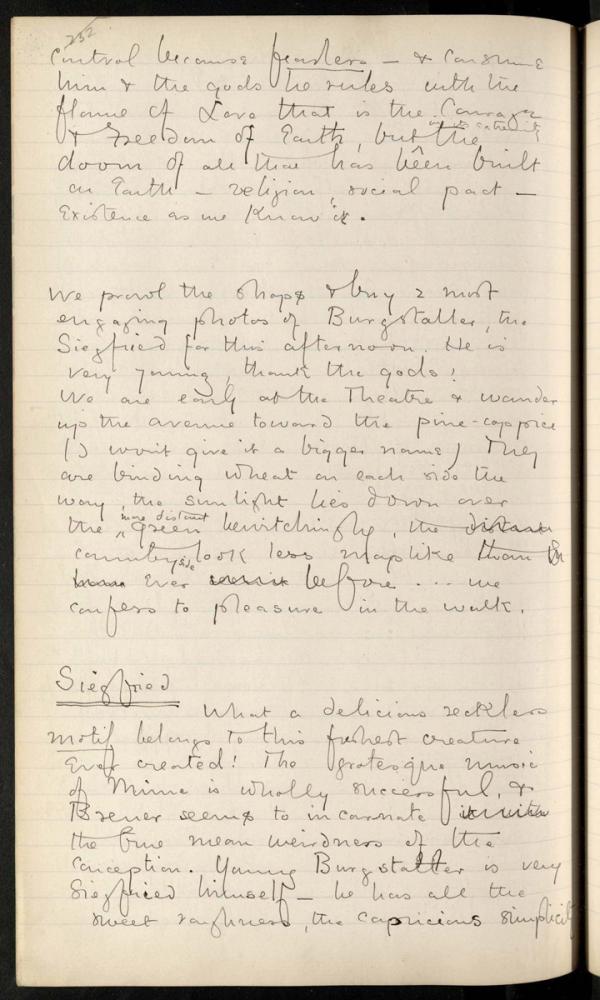 232
control because fearless — & consume
him & the gods he rules with the
flame of Love that is the Courage
& Freedom of Earth, but the
doom of all that has been built
on Earth — religion, social pact —
Existence as we know it.
We prowl the shops & buy 2 most
engaging photos of Burgstaller, the
Siegfried for this afternoon. He is
very young, thank the gods!
We are early at the Theatre & wander
up the avenue toward the pine-coppice
(I won't give it a bigger name) They
are binding wheat on each side the
way, the sunlight lies down over
the more distant green bewitchingly, the distant
countryside look less maplike than
ever before ... we
confess to pleasure in the walk.
Siegfried
What a delicious reckless
motif belongs to this freshest creature
Ever created! The grotesque music
of Mime is wholly successful, &
Breuer seems to incarnate
the fine mean weirdness of the
conception. Young Burgstaller is very
Siegfried himself — he has all the
sweet roughness, the capricious simplicity